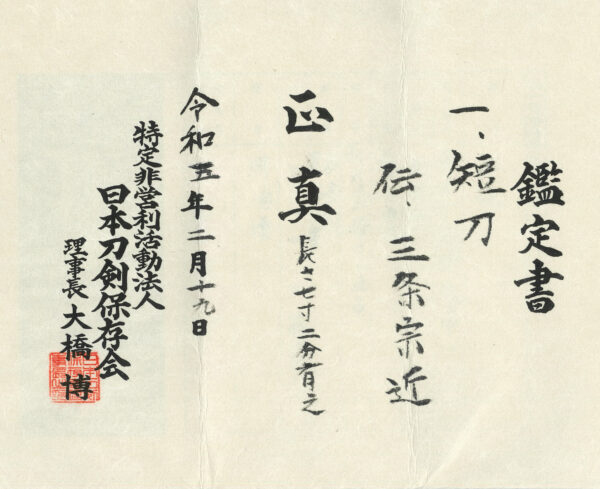 鑑定書
一、短刀
伝 三条宗近
正真
長さ七寸二分有之
令和五年二月十九日
特定非営利活動法人
日本刀剣保存会
理事長 大橋博